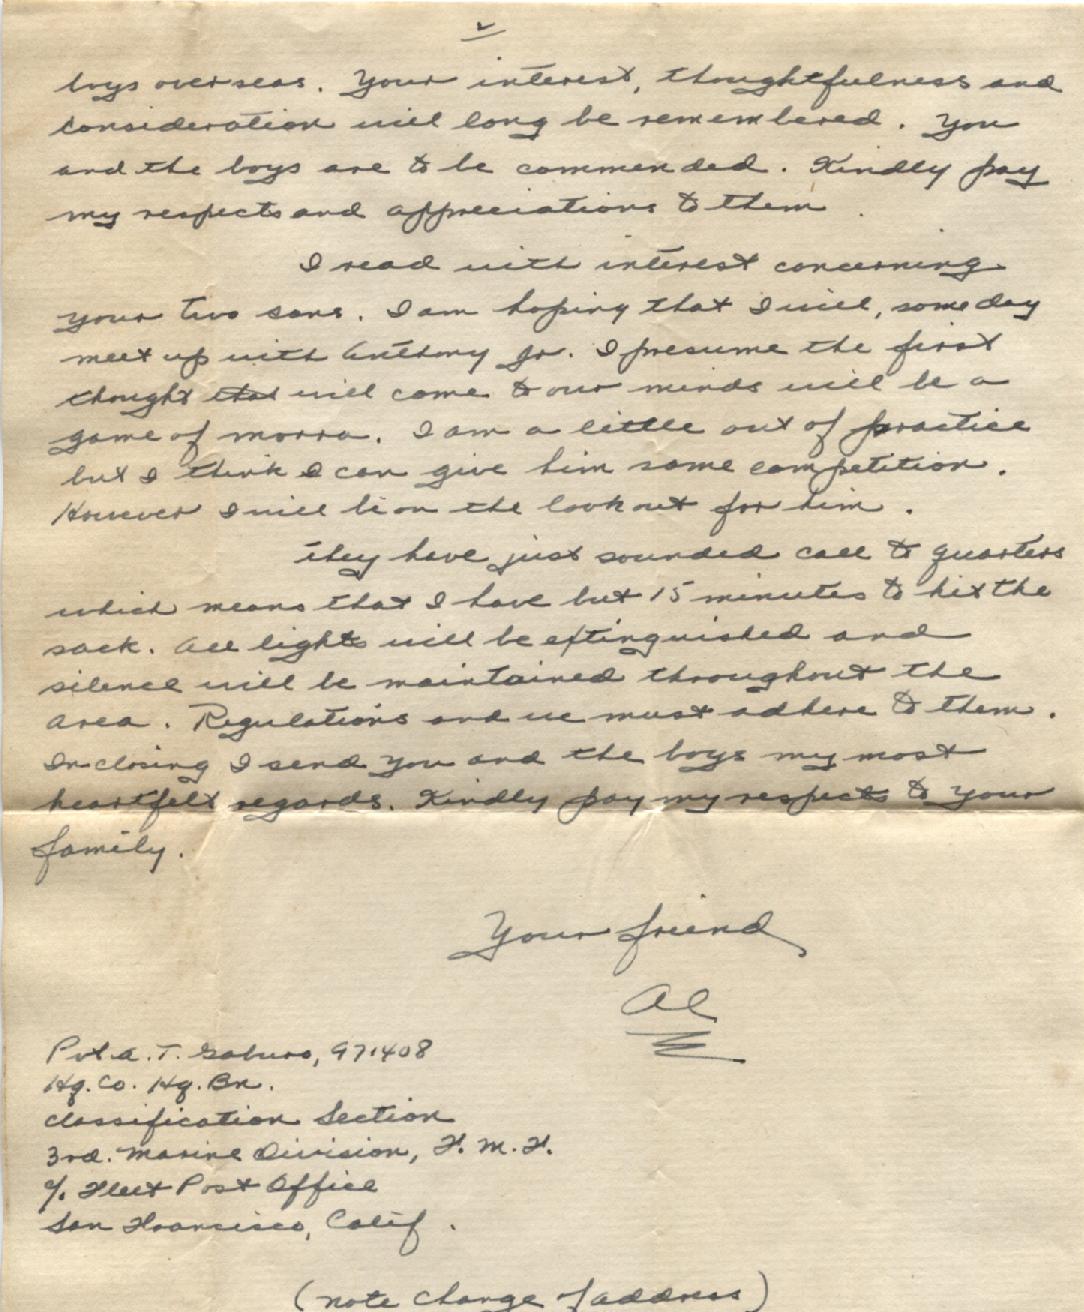 2
boys overseas. Your interest, thoughtfulness and
consideration will long be remembered. You
and the boys are to be commended. Kindly pay
my respects and appreciations to them.
I read with interest concerning
your two sons. I am hoping that I will, someday
meet up with Anthony Jr. I presume the first
thought that will come to our minds will be a
game of morra. I am a little out of practice
but I think I can give him some competition.
However I will be on the lookout for him.
They have just sounded call to quarters
which means that I have but 15 minutes to hit the
sack. All lights will be extinguished and
silence will be maintained throughout the
area. Regulations and we must adhere to them.
In closing I send you and the boys my most
heartfelt regards. Kindly pay my respects to your
family.
Your friend
Al
Pvt. A. T. Gaburo, 971408
Hq. Co. Hq. Bn.
Classification Section
3rd. Marine Division, F. M. F.
c/o Fleet Post Office
San Francisco, Calif.
(note change of address)